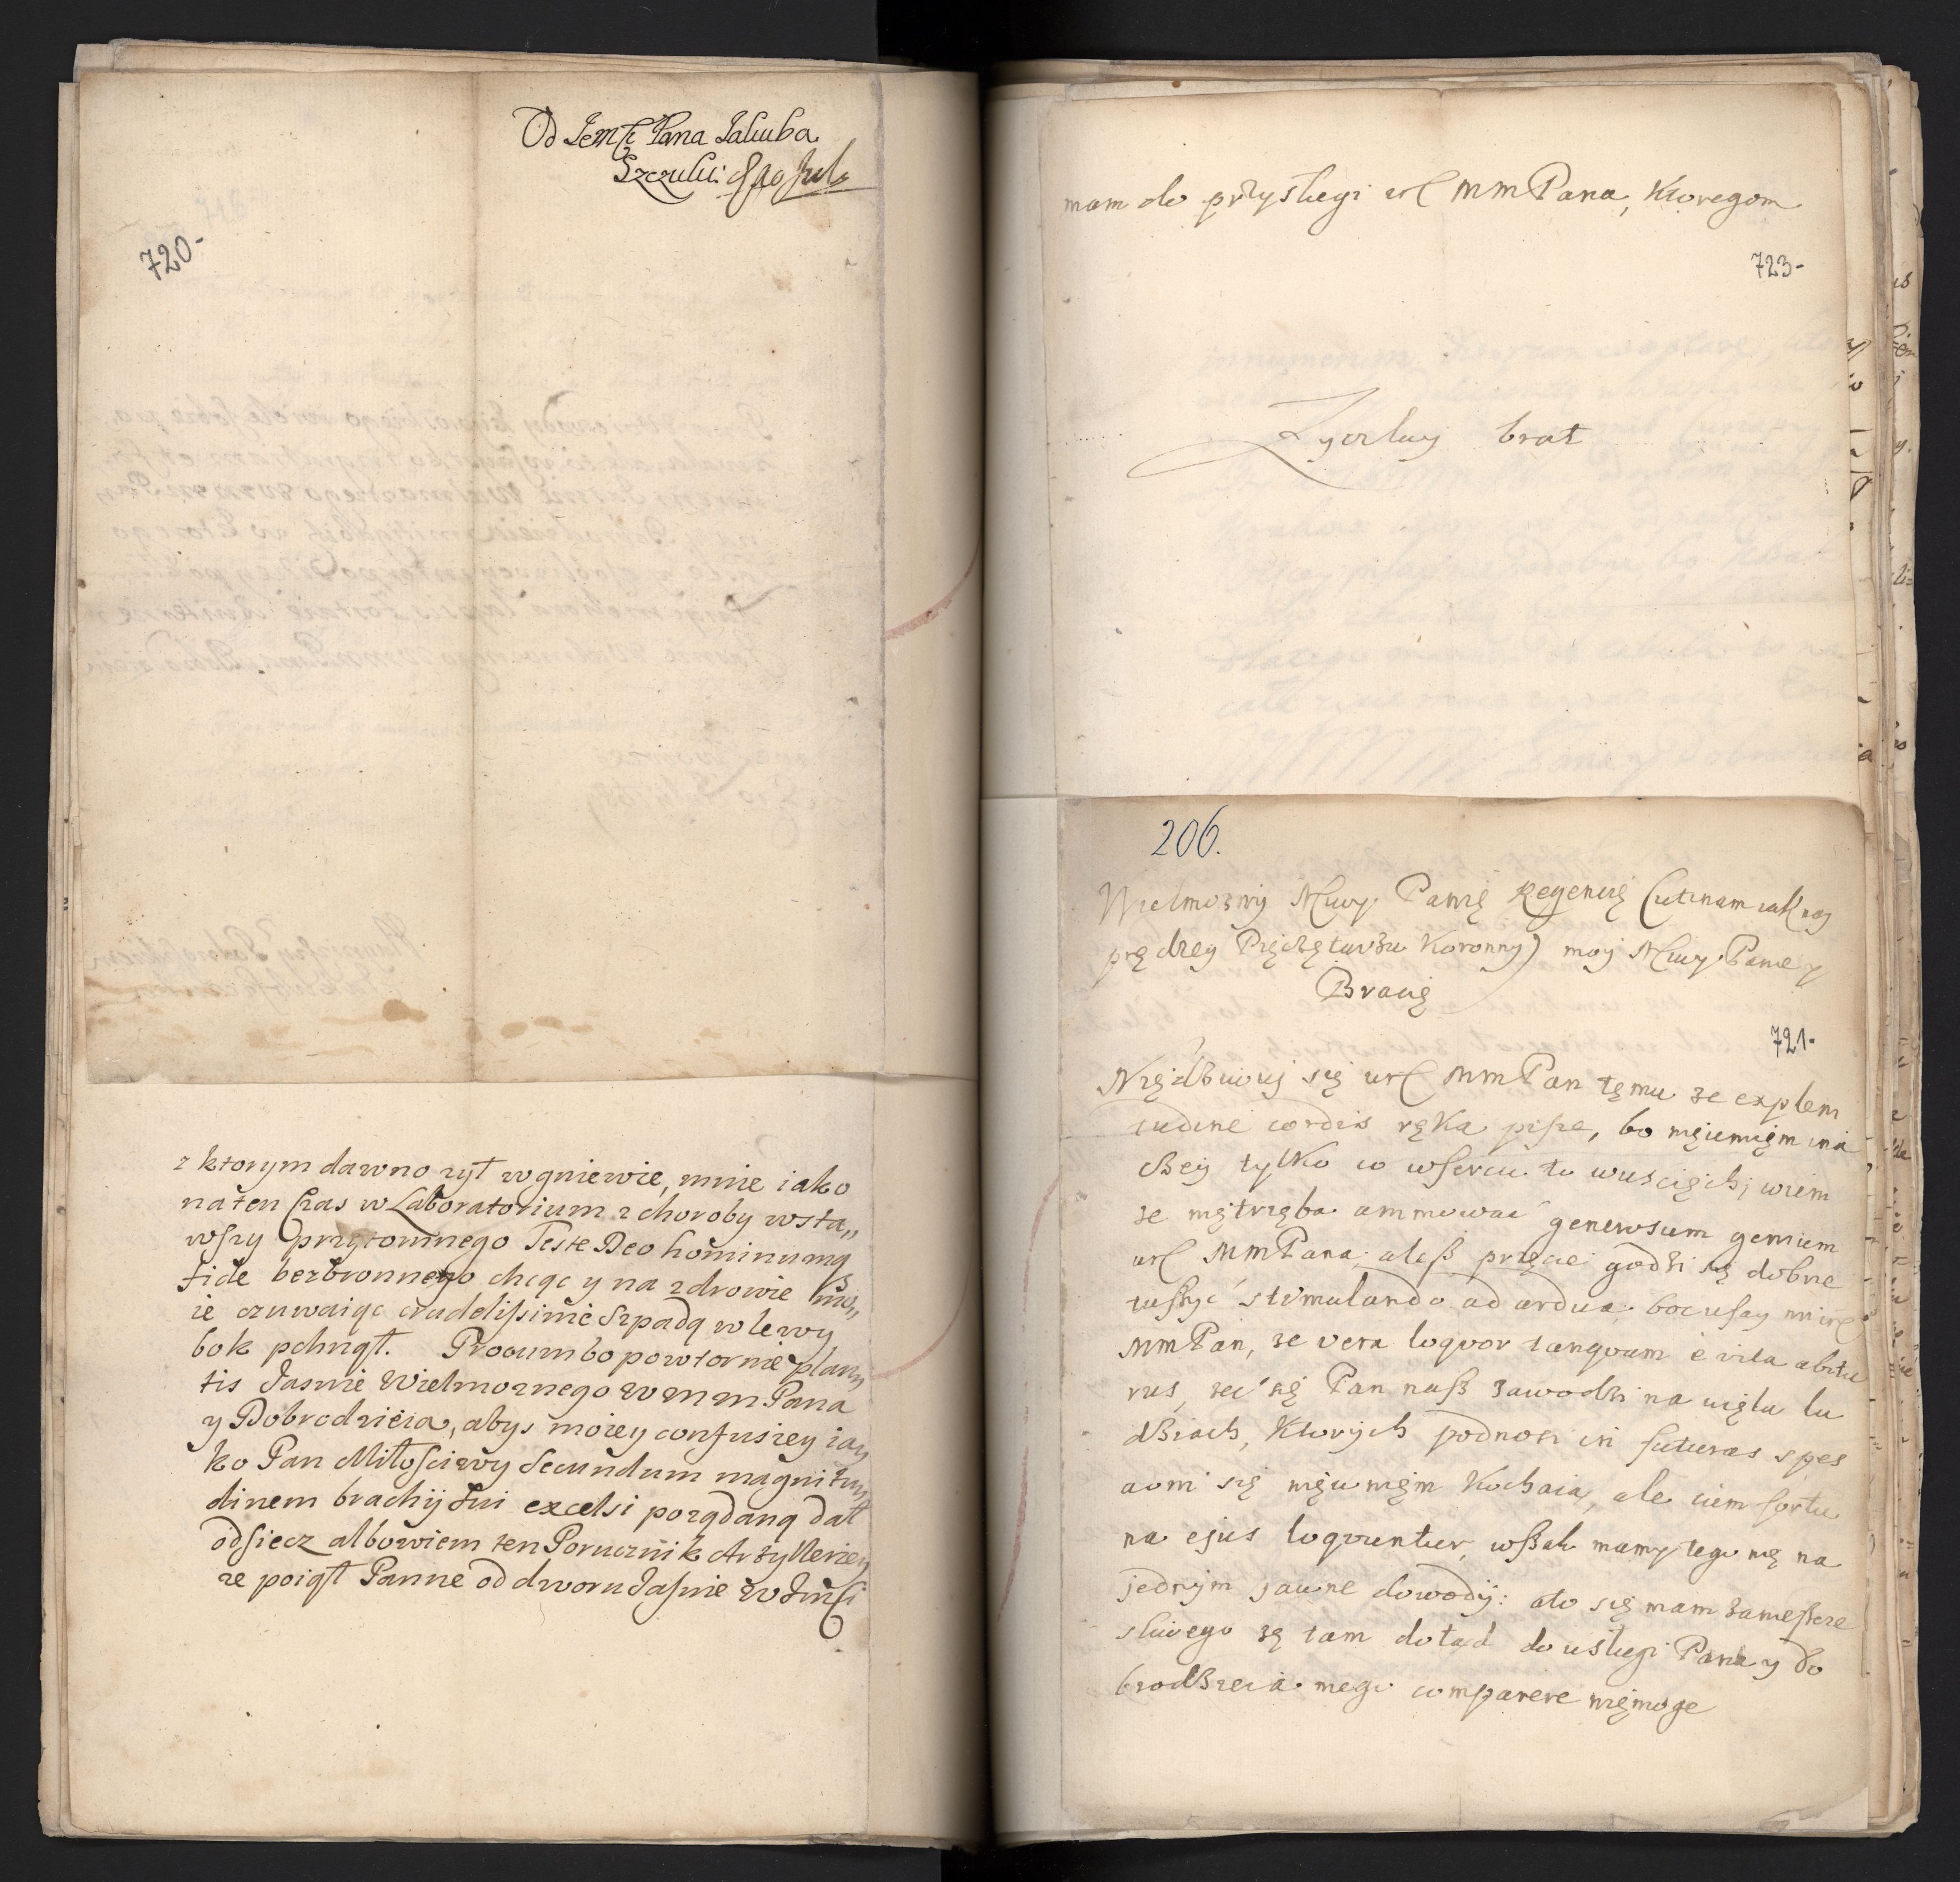 Od Jemści Pana Jakuba
Szczuki
720-
z ktorym dawno zył w gniewie, mnie iako
na ten czas w Laboratorium z choroby wsta„
wszy przytomnego Teste Deo hominumq
fide bezbronnego chcąc y na zdrowie mo„
ie czuwaiąc crudelissimè szpadą w lewy
bok pchnął. Procumbo powtornie plan„
tis Jasnie Wielmoznego W m m Pana
y Dobrodzieia, abys moiey confusiey ia„
ko Pan Miłościwy secundum magnitu„
dinem brachij tui excelsi porządaną dał
odsiecz albowiem ten Porucznik Artyllerie„
ze poiął Panne od dworu Jasnie W Jmści
mam do przysługi wć MMPana, Ktoregom
723-
Zyczlwy brat
206.
Wielmozny Młwy Panię Regencię (utinam iak nay
prędzey Pięczętarzu Koronny) moy Młwy Panie y
Bracię
721-
Niędziwuj się wć MMPan tęmu ze explem
tudine cordis ręka pisze, bo nięumięm ina
czey tylko co wsercu to wuscięch; wiem
ze niętrzęba animować generosum genium
wć MMPana, aleß pręcie godzi się dobrze
tuszyć stimulando ad ardua, bo ufay mi wć
MMPan, ze vera loqvor tanqvam è vita abitu
rus, zeć się Pan nasz zawodzi na więtu lu
dziach, Ktorych podnosi in futuras spes
aoni się nięumięm Kochaią, ale cum fortu
na ejus loqvuntur, wszak mamy tego nię na
jednym jawne dowody: ato się mam zanieszcze
sliwego zę tam dotąd do usługi Pana y do
brodzieia mego comparere nięmoge